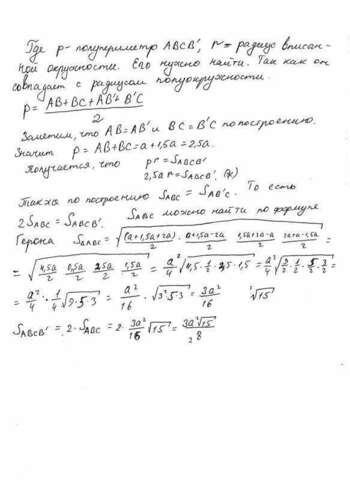 Где p- полупериметр ABCB', r= радиус вписан-
ной окружности. Его нужно найти. Так как он
совпадает с радиусом полуокружности.
p = (AB+BC+AB'+B'C)/2
Заметим, что AB=AB' и BC=B'C по построению.
Значит p = AB+BC=a+1,5a=2,5a.
Получается, что pr=S_ABCB'
2,5ar=S_ABCB'. (*)
Также по построению S_ABC = S_AB'C. То есть
2S_ABC = S_ABCB'. S_ABC можно найти по формуле
Герона S_ABC = √((a+1,5a+2a)/2 · (a+1,5a-2a)/2 · (1,5a+2a-a)/2 · (2a+a-1,5a)/2) =
= √(4,5a/2 · 0,5a/2 · 2,5a/2 · 1,5a/2) = a²/4 √(4,5·1/2·2,5·1,5) = a²/4 √(9/2·1/2·5/2·3/2) =
= a²/4 · 1/4 √(9·5·3) = a²/16 · √(3³·5) = 3a²/16 √15
S_ABCB' = 2·S_ABC = 2· 3a²/16 √15 = 3a²√15/8